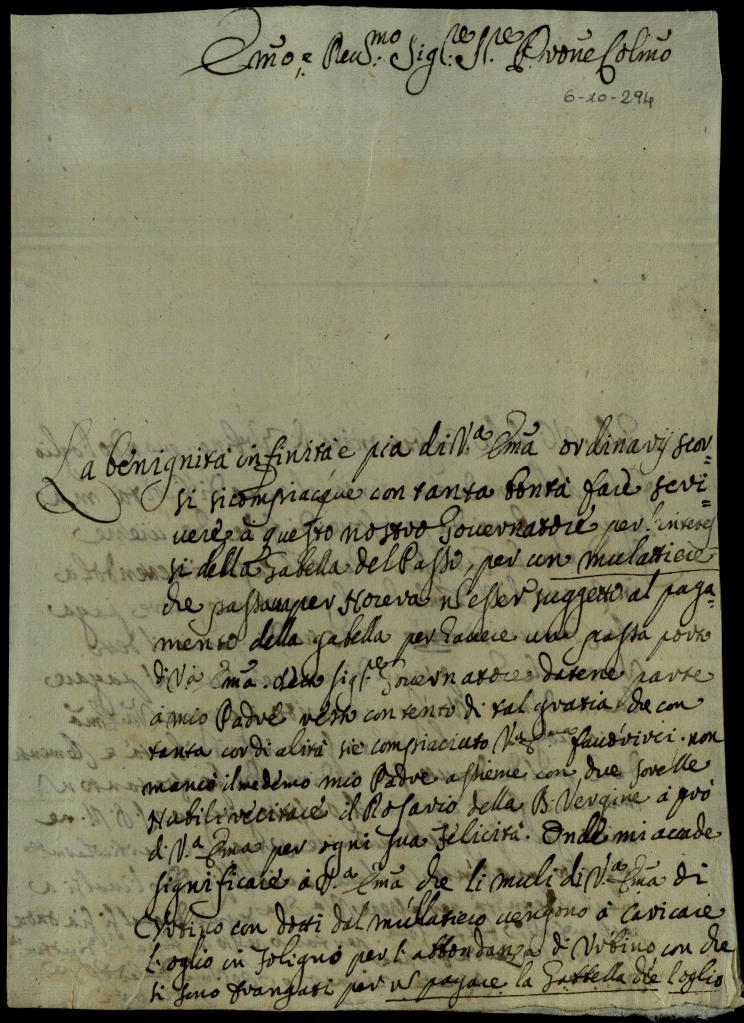 Emo e Reu.mo Sig.re S.re P.rone Colmo
6-10-294
La benignità infinità e pia di V.a Ema ordinarij scor=
si si compiacque con tanta bontà fare scri=
uere à questo nostro Gouernatore per l'interes
si della Gabella del Passo, per un mulattiere
che passaua per Nocera nõ esser suggetto al paga=
mento della gabella per hauere una passa porto
di V.a Ema. detto sig.re Gouernatore datene parte
à mio Padre restò contento di tal gratia che con
tanta cordialità sie compiaciuto V.a Ema fauorirci. non
manco il medemo mio Padre assieme con due sorelle
Nubili recitare il Rosario della B. Vergine à prò
di V.a Ema per ogni sua felicità. Onde mi accade
significare à V.a Ema che li muli di V.a Ema di
Vrbino con dotti dal mullatiero uengono à caricare
l'oglio in Foligno per l'abbondanza di Vrbino con che
si sono francati per nõ pagare la Gabella che l'oglio